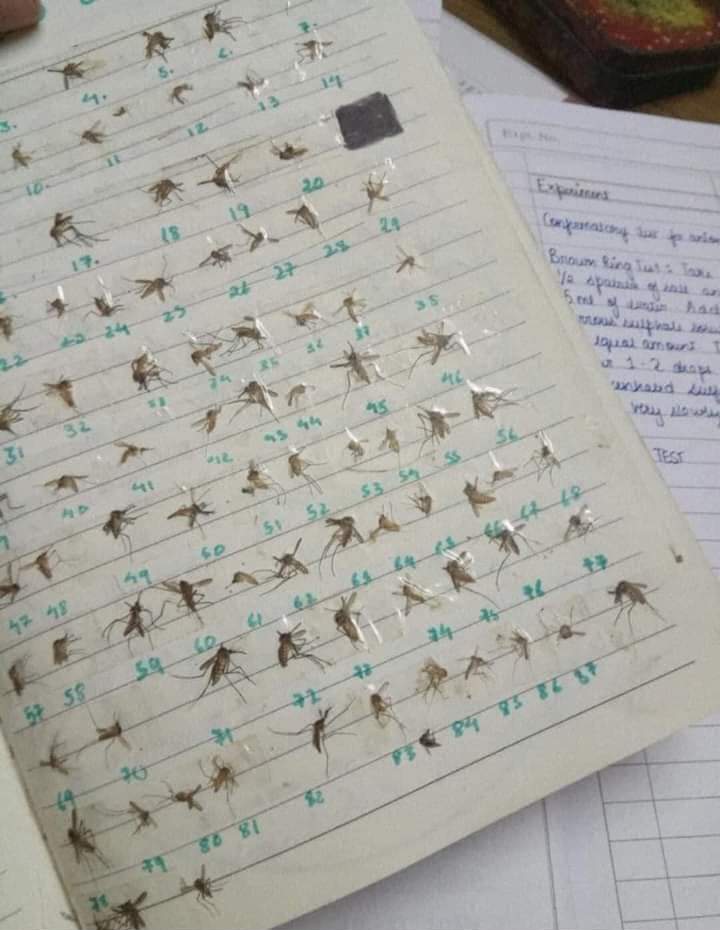 3. 4. 5. 6. 7.
10. 11 12 13 14
17. 18 19 20
22 23 24 25 26 27 28 29
31 32 33 34 35 36 37 38
40 41 42 43 44 45 46
47 48 49 50 51 52 53 54 55 56
57 58 59 60 61 62 63 64 65 66 67 68
69 70 71 72 73 74 75 76 77
78 79 80 81 82 83 84 85 86 87
Expt. No.
Experiment
Confirmatory test for
Brown Ring Test : Take
1/2 spatula of salt
5 ml of water. Add
sulphate
equal amount
1-2 drops
very slowly
TEST